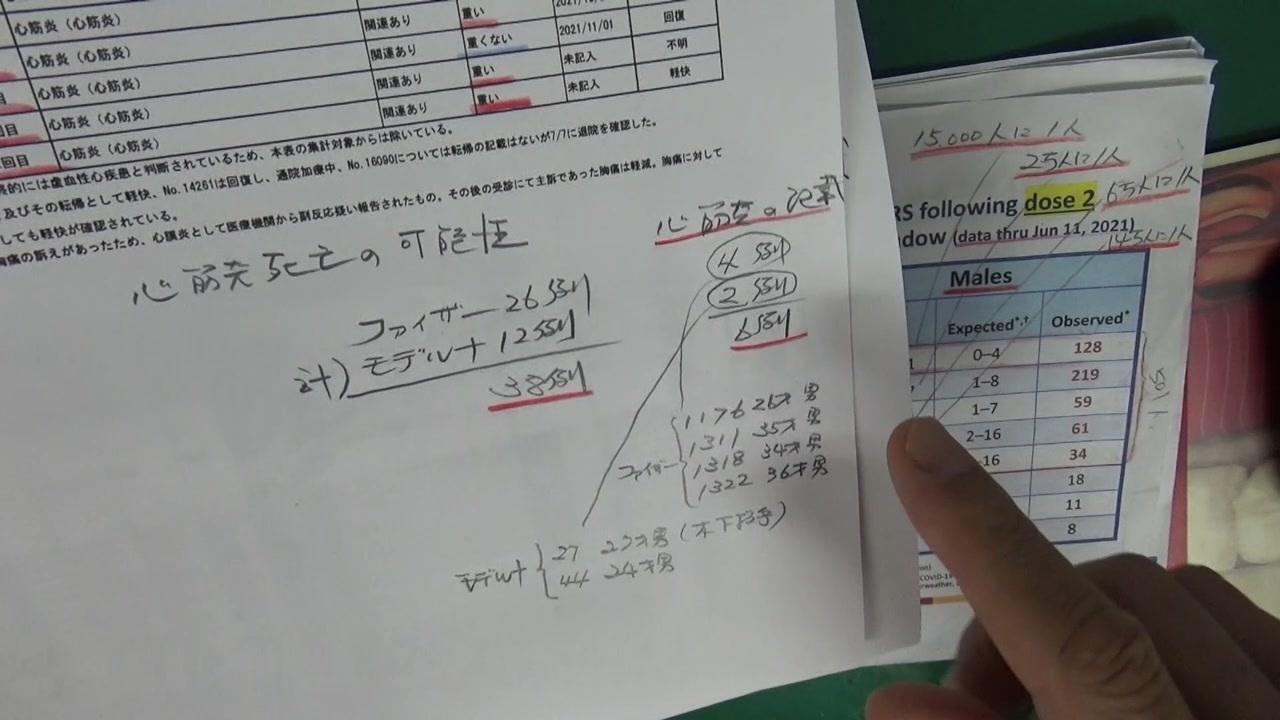 心筋炎（心筋炎） 関連あり 重い 回復
心筋炎（心筋炎） 関連あり 重くない 2021/11/01 不明
心筋炎（心筋炎） 関連あり 重い 未記入 軽快
回目 心筋炎（心筋炎） 関連あり 重い 未記入
回目 心筋炎（心筋炎）
的には虚血性心疾患と判断されているため、本表の集計対象からは除いている。
及びその転帰として軽快、No.14261は回復し、通院加療中、No.16090については転帰の記載はないが7/7に退院を確認した。
しても軽快が確認されている。
胸痛の訴えがあったため、心膜炎として医療機関から副反応疑い報告されたもの。その後の受診にて主訴であった胸痛は軽減。胸痛に対して
心筋炎死亡の可能性
ファイザー 26例
計) モデルナ 12例
38例
心筋炎の記載
4例
2例
6例
ファイザー
1176 26才 男
1311 35才 男
1318 34才 男
1322 36才 男
モデルナ
27 27才男(木下投手)
44 24才男
15.000人に1人
25人に1人
65人に1人
145人に1人
RS following dose 2
dow (data thru Jun 11, 2021)
Males
Expected*,† Observed*
0–4 128
1–8 219
1–7 59
2–16 61
16 34
18
11
8
COVID-19